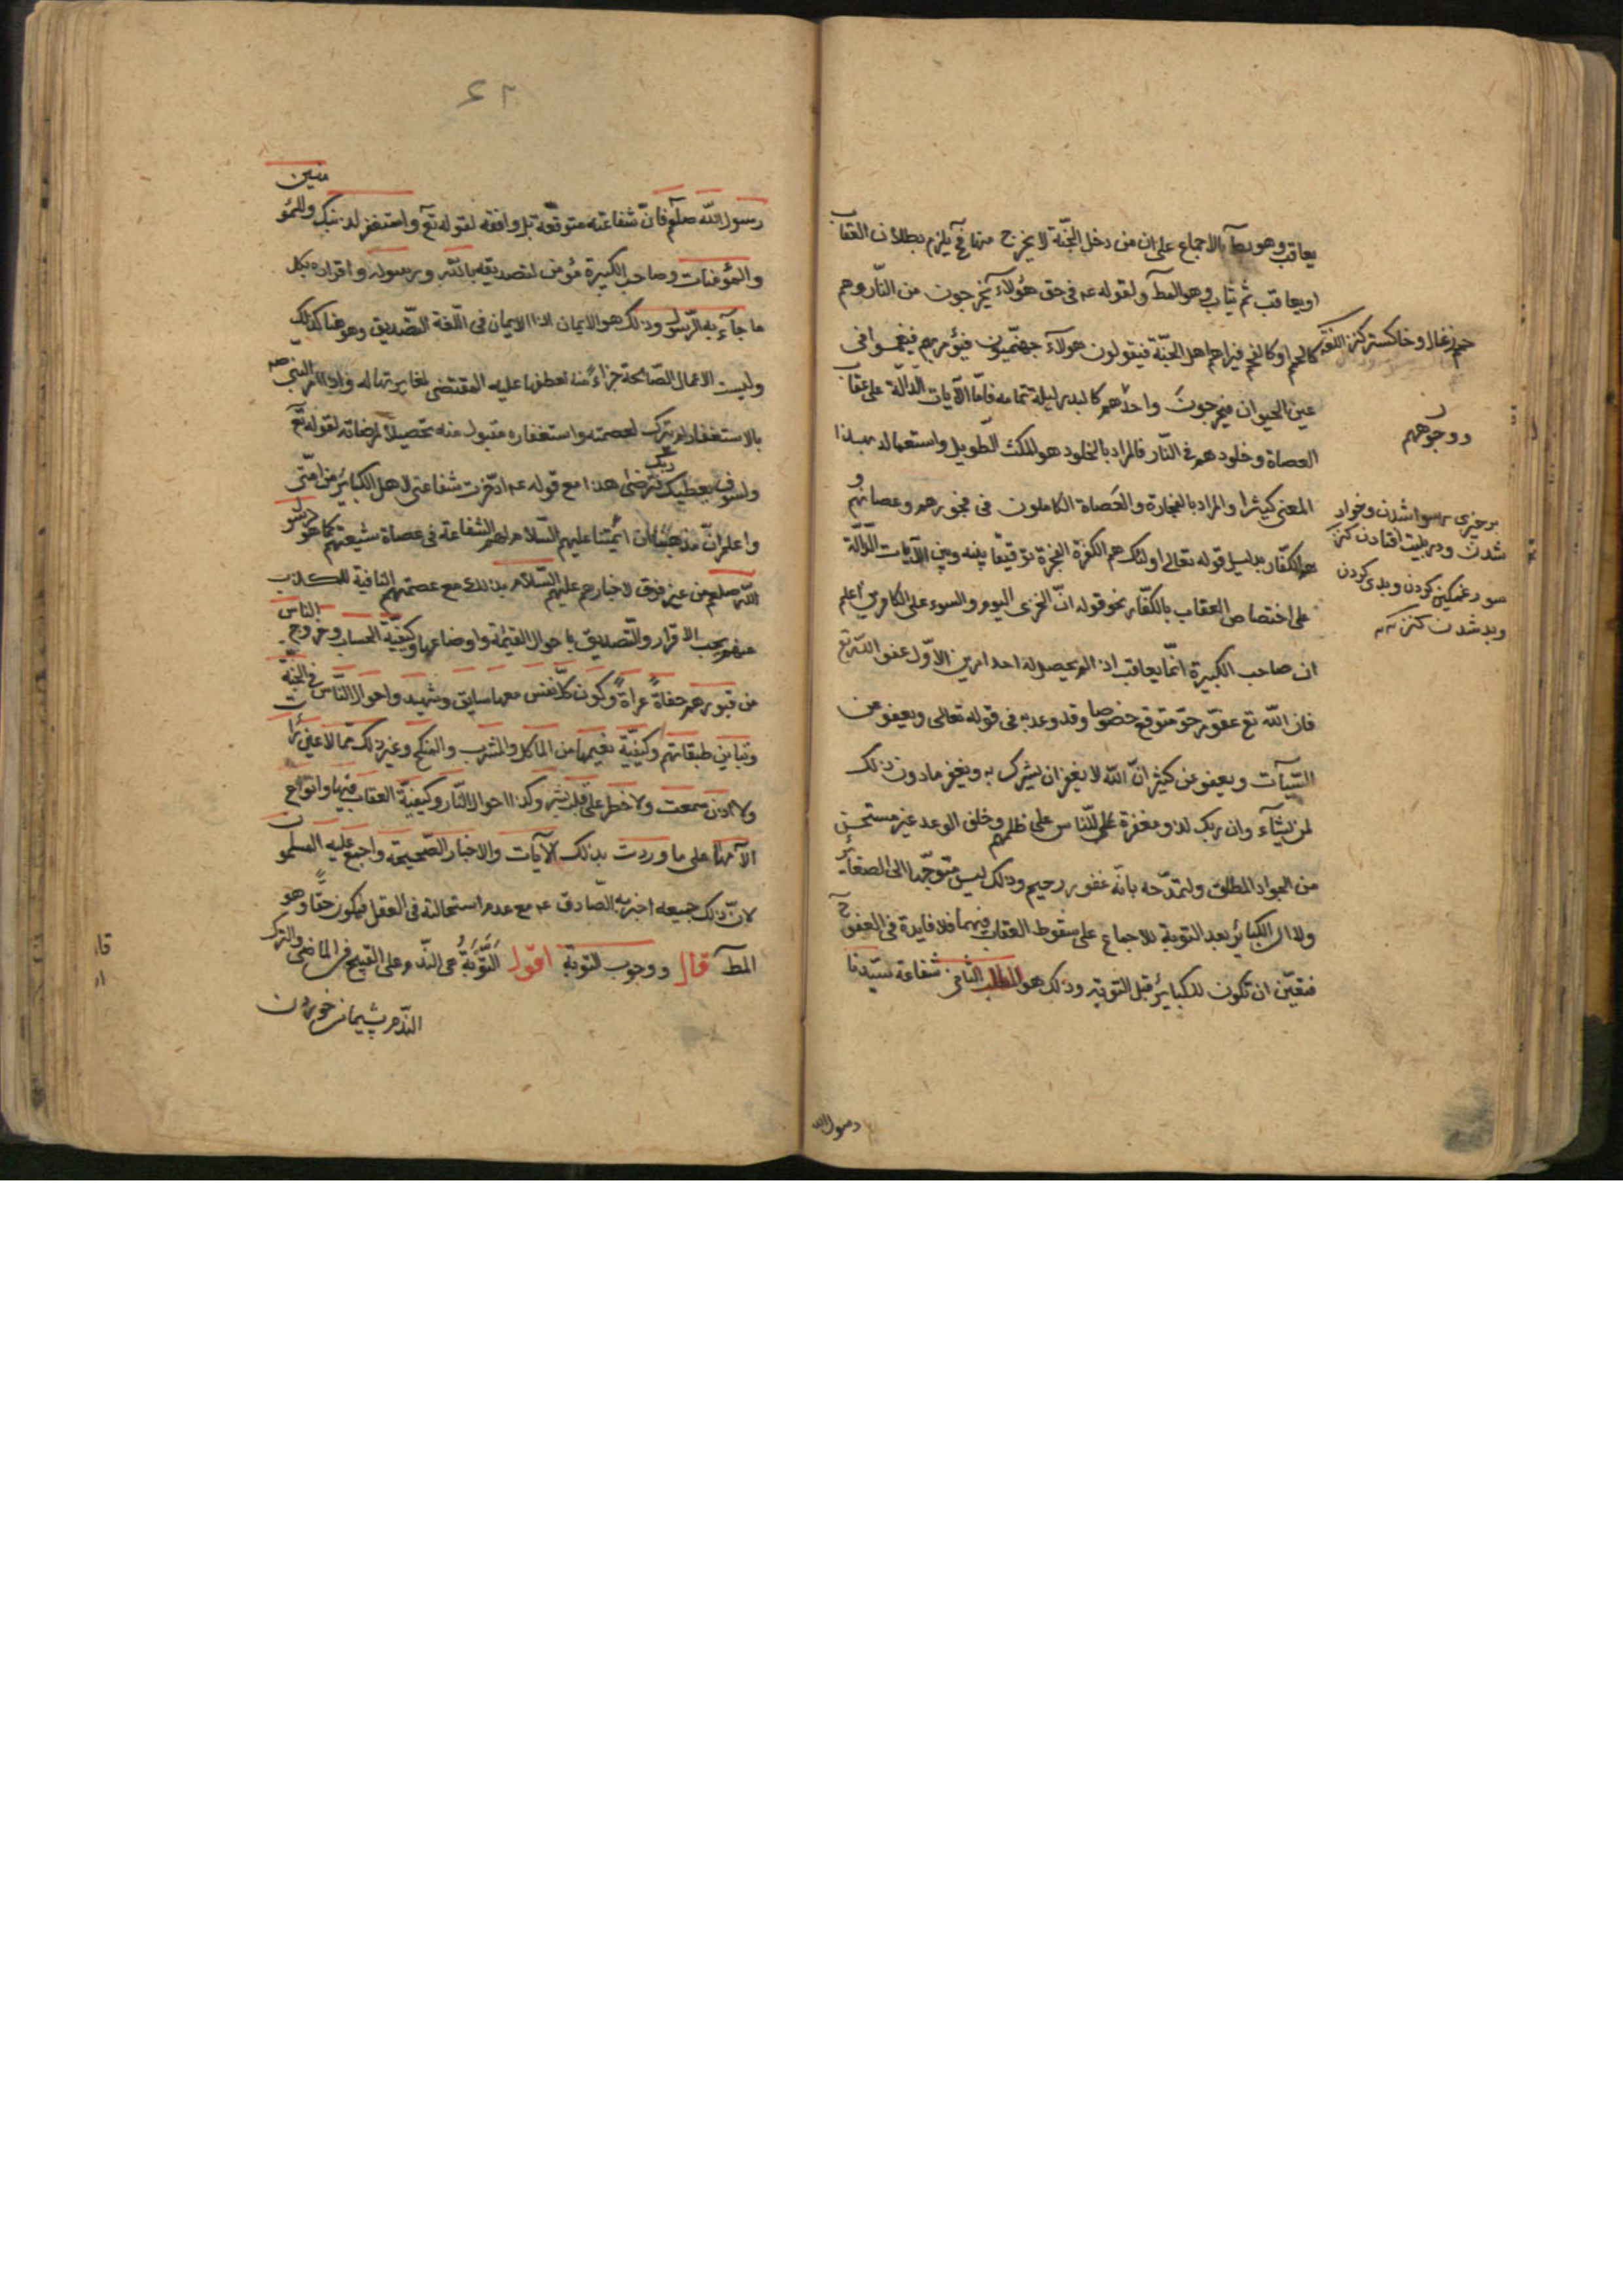 يعاقب وهو بط بالاجماع على ان من دخل الجنة لا يخرج منها فح يلزم بطلان العقاب
او يعاقب ثم يثاب وهو المط ولقوله عم فى حق هؤلاء يخرجون من النار وهم
كالحمم او كالفحم فيراهم اهل الجنة فيقولون هولاء جهنميون فيؤمر بهم فيغمسوا فى
عين الحيوان فيخرجون واحدهم كالبدر ليلة تمامه فاما الآيات الدالة على عقاب
العصاة وخلودهم فى النار فالمراد بالخلود هو المكث الطويل واستعماله بهذا
المعنى كثيرا والمراد بالفجارة والعصاة الكاملون فى فجورهم وعصيانهم و
هم الكفار بدليل قوله تعالى اولئك هم الكفرة الفجرة توفيقا بينه وبين الآيات الدالة
على اختصاص العقاب بالكفار نحو قوله ان الخزى اليوم والسوء على الكافرين اعلم
ان صاحب الكبيرة انما يعاقب اذا لم يحصل له احد امرين الاول عفو الله تع
فان الله تع عفوه مرجو متوقع خصوصا وقد وعد به فى قوله تعالى ويعفو عن
السيآت ويعفو عن كثير ان الله لا يغفر ان يشرك به ويغفر ما دون ذلك
لمن يشآء وان ربك لذو مغفرة للناس على ظلمهم وخلف الوعد غير مستحسن
من الجواد المطلق ولتمدحه بانه غفور رحيم وذلك ليس متوجها الى الصغائر
ولا الى الكبائر بعد التوبة للاجماع على سقوط العقاب فيهما فلا فايدة فى العفو ح
فتعين ان تكون للكبائر قبل التوبة وذلك هو المطلب الثانى شفاعة سيدنا
حمم زغال وخاكستر كنز اللغة
وجوههم
خزى رسوا شدن وخوار
شدن ودر بليت افتادن كنز
سوء غمكين كردن وبدى كردن
وبد شدن كنز
رسول الله
٦٢
رسول الله صلعم فان شفاعته متوقعة بل واقعة لقوله تع واستغفر لذنبك وللمؤمنين
والمؤمنات وصاحب الكبيرة مؤمن لتصديقه بالله وبرسوله واقراره بكل
ما جآء به الرسول وذلك هو الايمان اذ الايمان فى اللغة التصديق وهو هنا كذلك
وليست الاعمال الصالحة جزاء منه لعطفها عليه المقتضى لمغايرتها له واذا امر النبى ص
بالاستغفار لم يترك لعصمته واستغفاره مقبول منه تحصيلا لمرضاته لقوله تع
ولسوف يعطيك ربك فترضى هذا مع قوله عم ادخرت شفاعتى لاهل الكبائر من امتى
واعلم ان مذهبنا ان ائمتنا عليهم السلام لهم الشفاعة فى عصاة شيعتهم كما هو لرسول
الله صلعم من غير فرق لاخبارهم عليهم السلام بذلك مع عصمتهم النافية للكذب
عنهم ويجب الاقرار والتصديق باحوال القيمة واوضاعها وكيفية الحساب وخروج الناس
من قبورهم حفاة عراة وكون كل نفس معها سايق وشهيد واحوال الناس فى الجنة
وتباين طبقاتهم وكيفية نعيمها من الماكل والمشرب والمنكح وغير ذلك مما لا عين رأت
ولا اذن سمعت ولا خطر على قلب بشر وكذا احوال النار وكيفية العقاب فيها وانواع
الآمها على ما وردت بذلك الآيات والاخبار الصحيحة واجمع عليه المسلمون
لان ذلك جميعه اخبر به الصادق عم مع عدم استحالته فى العقل فيكون حقا وهو
المط قال ووجوب التوبة اقول التوبة هى الندم على القبيح فى الماضى والترك
الندم پشيمانى خوردن